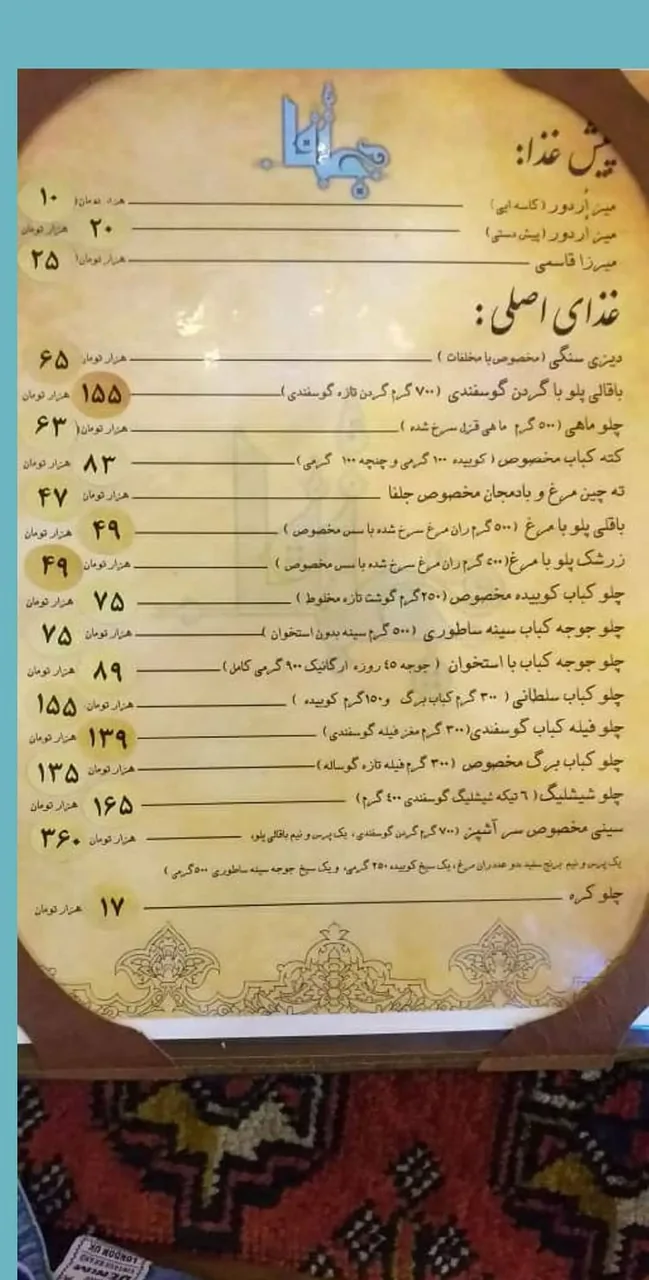 جلفا
پیش غذا:
میز اُردور (کاسه ایی) ۱۰ هزار تومان
میز اردور (پیش دستی) ۲۰ هزار تومان
میرزا قاسمی ۲۵ هزار تومان
غذای اصلی:
دیزی سنگی (مخصوص با مخلفات) ۶۵ هزار تومان
باقالی پلو با گردن گوسفندی (۷۰۰ گرم گردن تازه گوسفندی) ۱۵۵ هزار تومان
چلو ماهی (۵۰۰ گرم ماهی قزل سرخ شده) ۶۳ هزار تومان
کته کباب مخصوص (کوبیده ۱۰۰ گرمی و چنچه ۱۰۰ گرمی) ۸۳ هزار تومان
ته چین مرغ و بادمجان مخصوص جلفا ۴۷ هزار تومان
باقلی پلو با مرغ (۵۰۰ گرم ران مرغ سرخ شده با سس مخصوص) ۴۹ هزار تومان
زرشک پلو با مرغ (۵۰۰ گرم ران مرغ سرخ شده با سس مخصوص) ۴۹ هزار تومان
چلو کباب کوبیده مخصوص (۲۵۰ گرم گوشت تازه مخلوط) ۷۵ هزار تومان
چلو جوجه کباب سینه ساطوری (۵۰۰ گرم سینه بدون استخوان) ۷۵ هزار تومان
چلو جوجه کباب با استخوان (جوجه ۴۵ روزه ارگانیک ۹۰۰ گرمی کامل) ۸۹ هزار تومان
چلو کباب سلطانی (۳۰۰ گرم کباب برگ و ۱۵۰ گرم کوبیده) ۱۵۵ هزار تومان
چلو فیله کباب گوسفندی (۳۰۰ گرم مغز فیله گوسفندی) ۱۳۹ هزار تومان
چلو کباب برگ مخصوص (۳۰۰ گرم فیله تازه گوساله) ۱۳۵ هزار تومان
چلو شیشلیگ (۶ تیکه شیشلیگ گوسفندی ۴۰۰ گرم) ۱۶۵ هزار تومان
سینی مخصوص سر آشپز (۷۰۰ گرم گردن گوسفندی، یک پرس و نیم باقالی پلو، ۳۶۰ هزار تومان
یک پرس و نیم برنج سفید بدو عدد ران مرغ، یک سیخ کوبیده ۲۵۰ گرمی، و یک سیخ جوجه سینه ساطوری ۵۰۰ گرمی)
چلو کره ۱۷ هزار تومان
LONDON UK
DENIM